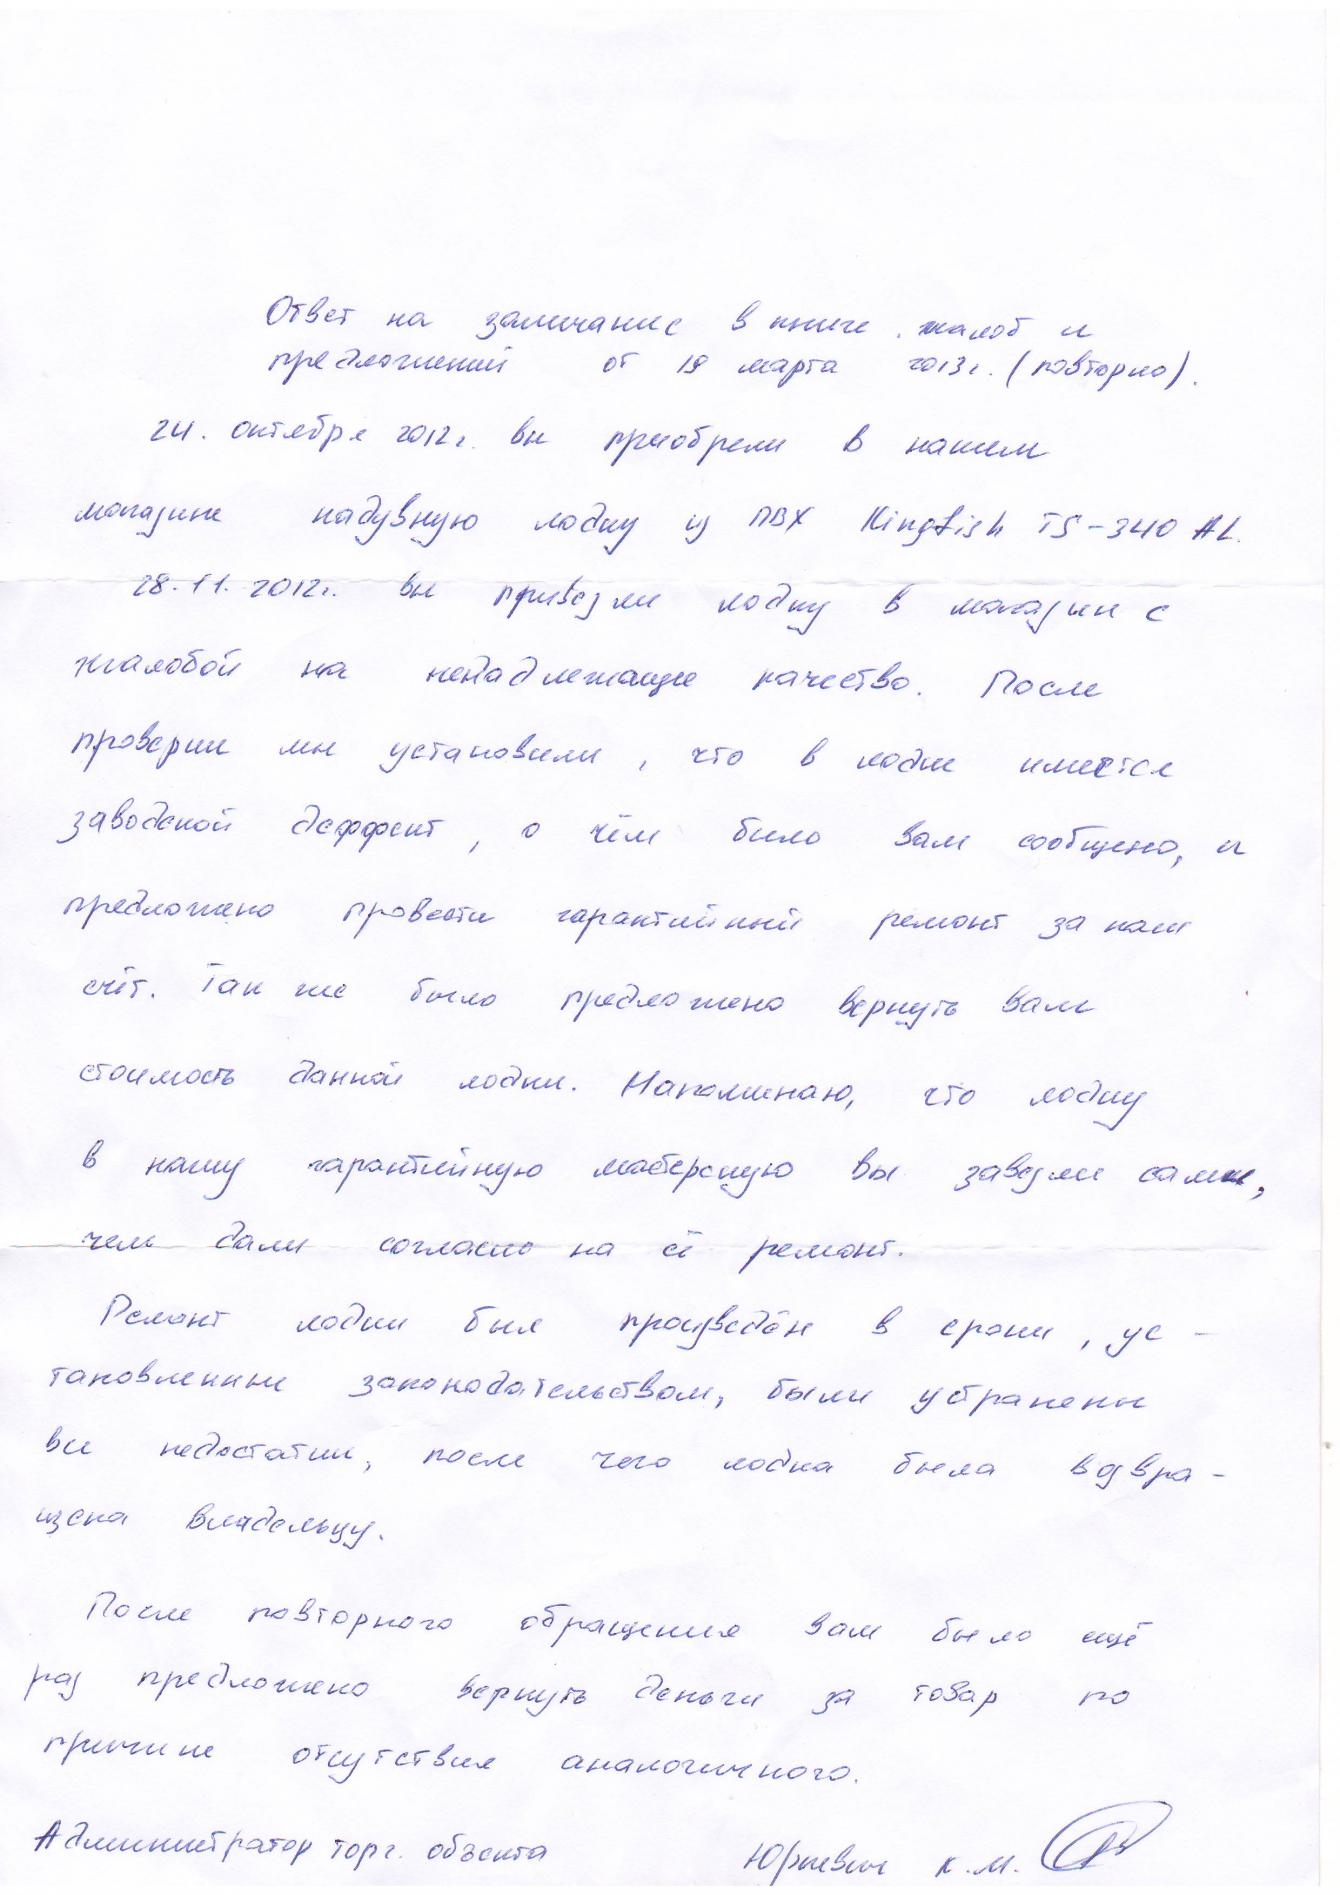 Ответ на замечание в книге жалоб и
предложений от 19 марта 2013г. (повторно).
24. октября 2012г. вы приобрели в нашем
магазине надувную лодку из ПВХ Kingfish TS-340 AL.
28.11.2012г. вы привезли лодку в магазин с
жалобой на ненадлежащие качество. После
проверки мы установили, что в лодке имеется
заводской деффект, о чём было вам сообщено, и
предложено провести гарантийный ремонт за наш
счёт. Так же было предложено вернуть вам
стоимость данной лодки. Напоминаю, что лодку
в нашу гарантийную мастерскую вы завезли сами,
чем дали согласно на её ремонт.
Ремонт лодки был произведён в сроки, ус-
тановленные законодательством, были устранены
все недостатки, после чего лодка была возвра-
щена владельцу.
После повторного обращения вам было ещё
раз предложено вернуть деньги за товар по
причине отсутствия аналогичного.
Администратор торг. объекта Юркевич К.М.